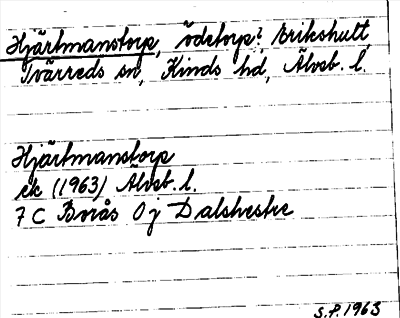 Hjärtmanstorp, ödetorp? Erikshult,
Tvärreds sn, Kinds hd, Älvsb. l.
Hjärtmanstorp
ek (1963) Älvsb. l.
7 C Borås 0 j Dalshestre
S.P. 1963